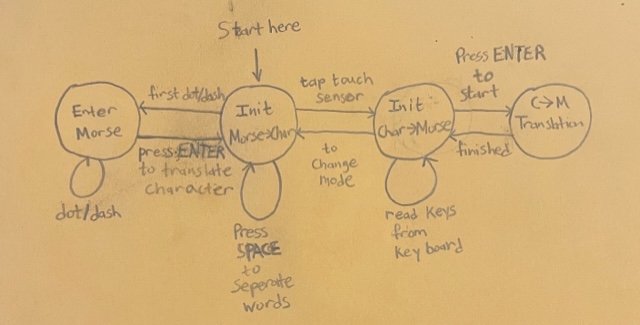 Start here
first dot/dash
Enter
Morse
press ENTER
to translate
character
dot/dash
Init
Morse→Char
Press
SPACE
to
Seperate
words
tap touch
sensor
to
Change
mode
Init
Char→Morse
read Keys
from
Keyboard
Press ENTER
to
start
C→M
Translation
finished